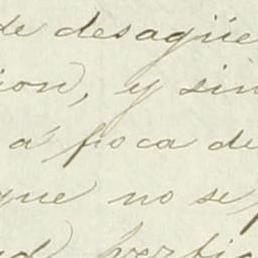 de desagüe
ion, y sin
a poca de
que no se